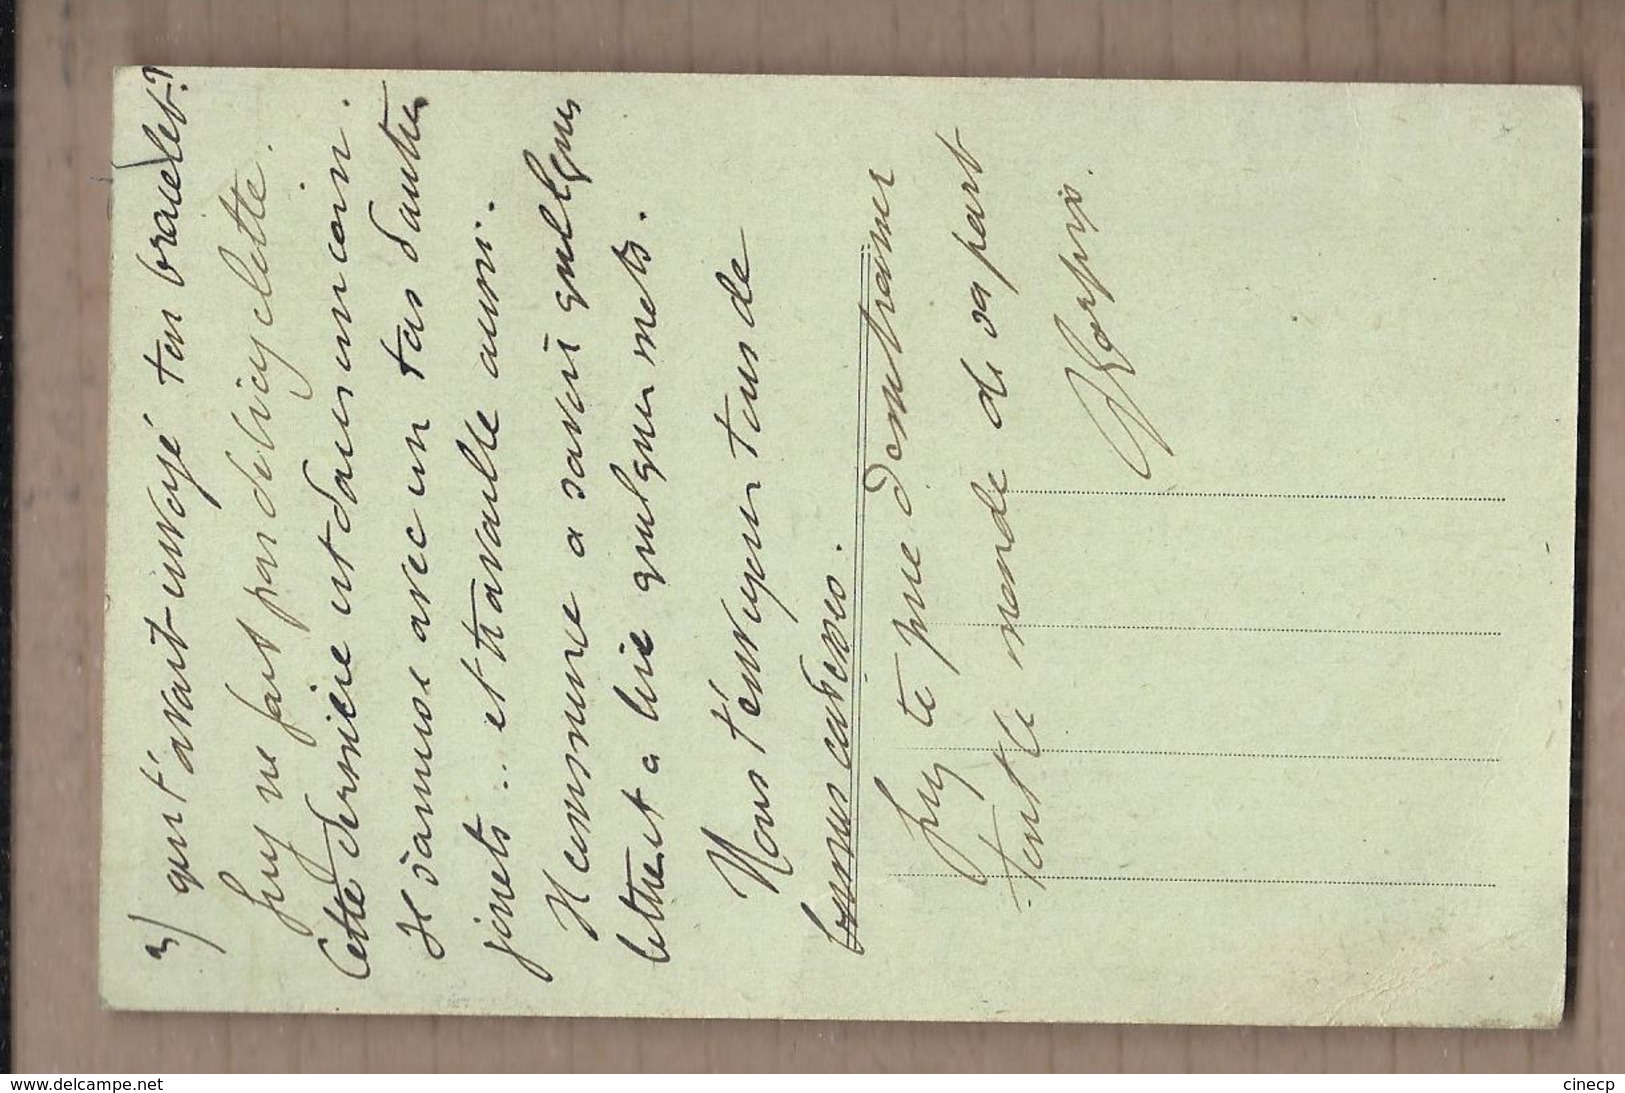 3/ qui t'avait envoyé ton bracelet?
Guy ne fait pas de bicyclette.
Cette dernière est dans un coin.
Il s'amuse avec un tas d'autres
jouets... et travaille aussi.
Il commence a savoir quelques
lettres et a lire quelques mots.
Nous t'envoyons tous de
bonnes caresses.
Guy te prie d'embrasser
tante de sa part
www.delcampe.net
cinecp